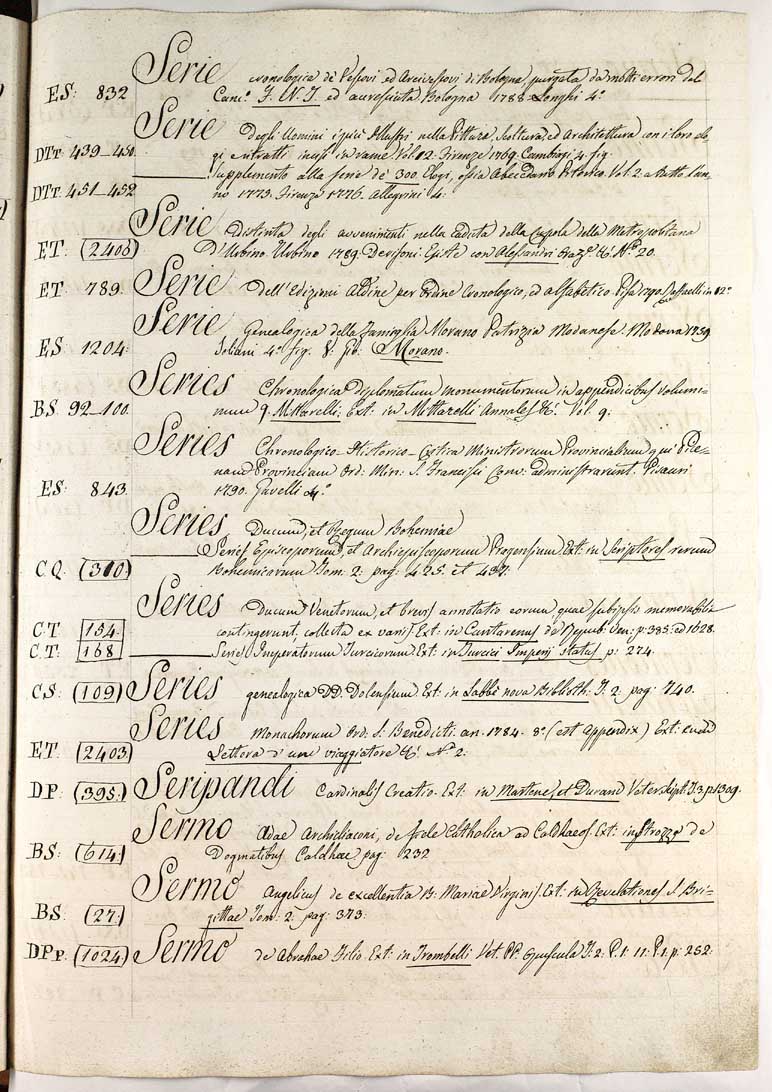 Serie cronologica de' Vescovi ed Arcivescovi di Bologna purgata da molti errori dal
ES: 832 Canc.° J. N. J ed accresciuta. Bologna 1788. Longhi 4°
Serie degli Uomini i più Illustri nella Pittura, Scultura, ed Architettura con i loro elo-
DTt. 439_450 gi e ritratti incisi in rame Vol. 12. Firenze 1769. Cambiagi 4. fig.
Supplemento alla serie de' 300. Elogi, ossia Abecedario Pittorico. Vol. 2. a tutto l'an-
DTt. 451_452 no 1775. Firenze 1776. Allegrini 4.
Serie distinta degli avvenimenti nella Caduta della Cupola della Metropolitana
ET. (2406) d'Urbino. Urbino 1789. Derisoni Esiste con Alessandri Oraz.e &c. N.° 20.
ET. 789. Serie dell'Edizioni Aldine per ordine Cronologico, ed alfabetico. Pisa 1790. in 12°
Serie Genealogica della Famiglia Morano Patrizia Modanese. Modena 1739
ES. 1204. Soliani 4° fig. V. Morano.
Series Chronologica diplomatum monumentorum in appendicibus Volumi-
BS. 92_100. num 9. Mittarelli: Ext: in Mittarelli Annales &c. Vol. 9.
Series Chronologico-Historico-Critica Ministrorum Provincialium qui Pice-
nam Provinciam Ord: Min: S. Francisci Conv. administrarunt. Pisauri
ES. 843. 1790. Gavelli 4.°
Series Ducum, et Regum Bohemiae
Series Episcoporum, et Archiepiscoporum Pragensium Ext: in Scriptores rerum
CQ. (310) Bohemicarum Tom. 2: pag: 425. et 437.
Series Ducum Venetorum, et brevis annotatio eorum, quae sub ipsis memorabilia
C.T. 154. contingerunt, collecta ex variis Ext: in Contarenus de Repub: Ven: p. 385. ed 1628.
C.T: 168. Series Imperatorum Turcicorum Ext: in Turcici Imperij status p: 274.
CS: (109) Series genealogica DD. Dolensium Ext: in Labbè nova Biblioth. T. 2. pag: 740.
Series Monachorum Ord. S. Benedicti. an. 1784. 8° (est appendix) Ext: cum
ET. (2403) Lettera d'un viaggiatore &c. N.° 2.
DP: (395.) Seripandi Cardinalis Creatio. Ext: in Martene, et Durand Veter. Script. T. 3. p. 1309.
Sermo Adae Archidiaconi, de fide Catholica ad Caldhaeos. Ext: in Strozza de
BS: (614.) Dogmatibus Caldhae pag: 232
Sermo Angelicus de excellentia B: Mariae Virginis. Ext: in Revelationes S. Bri-
BS: (27.) gittae Tom: 2. pag: 373:
DPp: (1024) Sermo de Abrahae filio. Ext: in Trombelli Vet. PP. opuscula T: 2: P. 1: p: 252.